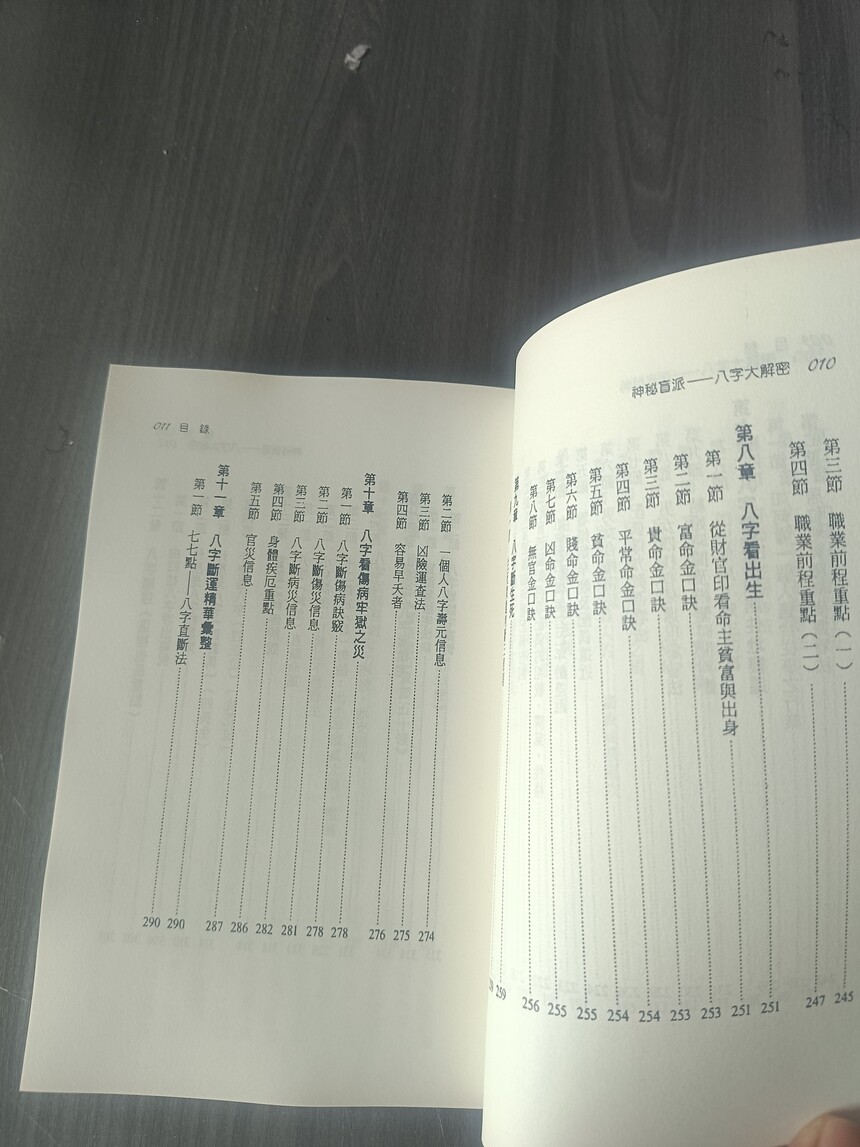 神秘盲派——八字大解密 010
第三節 職業前程重點（一）245
第四節 職業前程重點（二）247
第八章 八字看出生 251
第一節 從財官印看命主貧富與出身 251
第二節 富命金口訣 253
第三節 貴命金口訣 253
第四節 平常命金口訣 254
第五節 貧命金口訣 254
第六節 賤命金口訣 255
第七節 凶命金口訣 255
第八節 無官金口訣 256
第九章 八字斷生死 259
011 目 錄
第二節 一個人八字壽元信息 274
第三節 凶險運查法 275
第四節 容易早夭者 276
第十章 八字看傷病牢獄之災 278
第一節 八字斷傷病訣竅 278
第二節 八字斷傷災信息 281
第三節 八字斷病災信息 282
第四節 身體疾厄重點 286
第五節 官災信息 287
第十一章 八字斷運精華彙整 290
第一節 七七點——八字直斷法 290